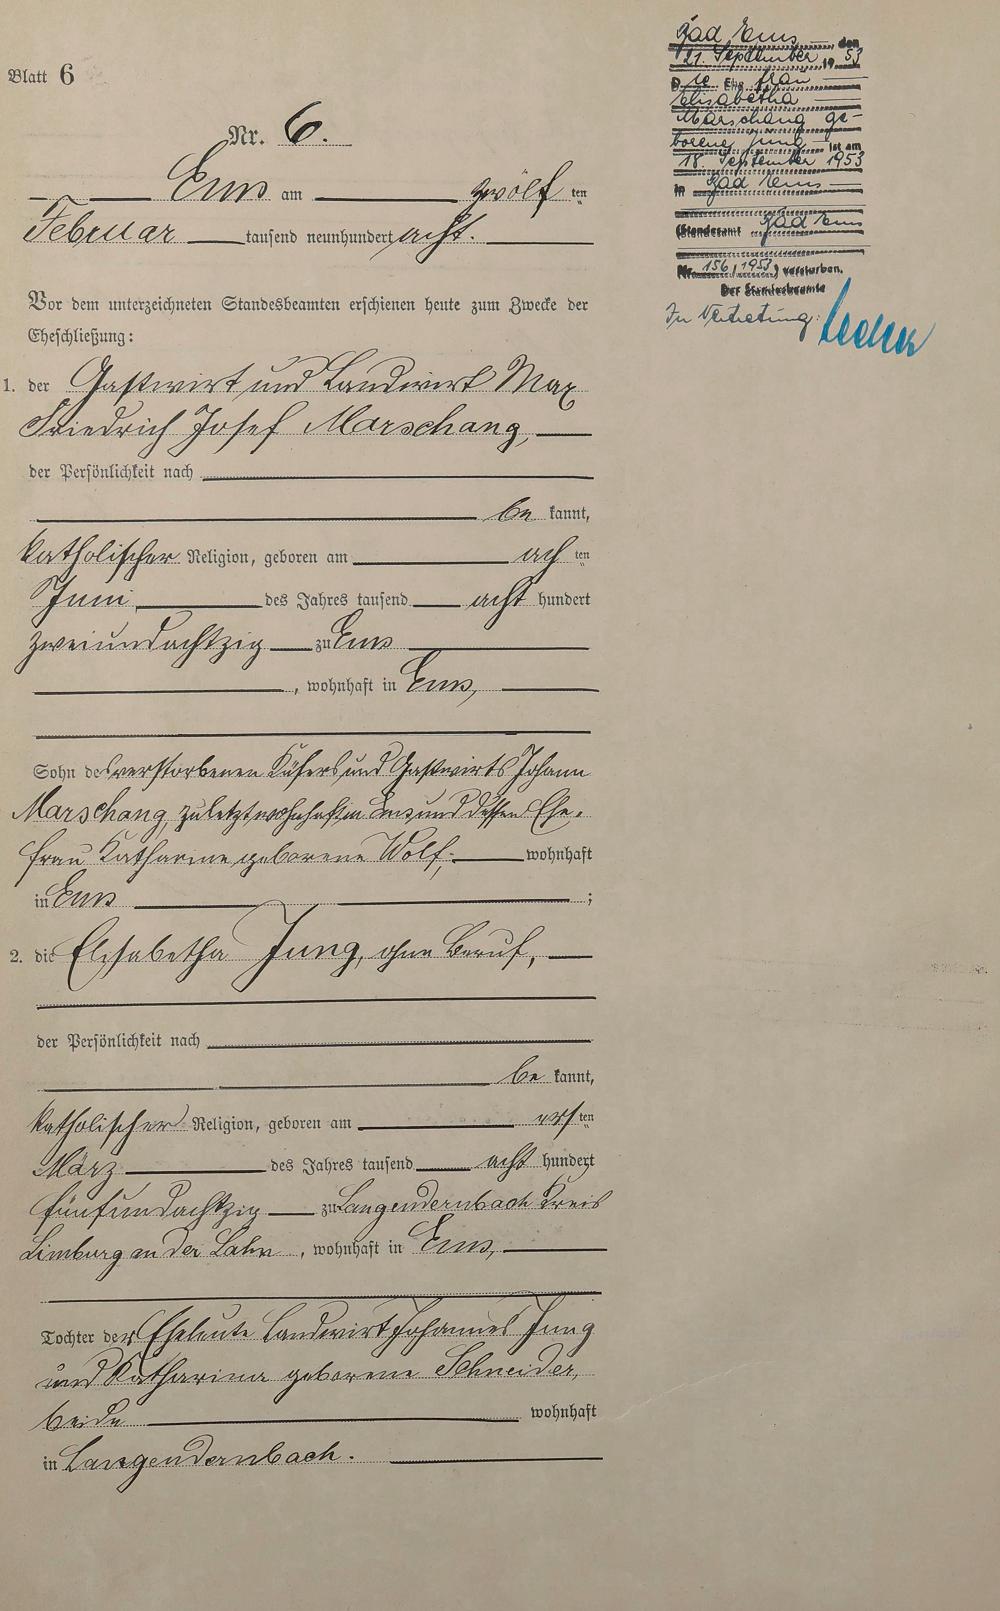 Blatt 6
Nr. 6.
Ems am zwölf ten
Februar tausend neunhundert acht.
Vor dem unterzeichneten Standesbeamten erschienen heute zum Zwecke der
Eheschließung:
1. der Gastwirt und Landwirt Max
Friedrich Josef Marschang,
der Persönlichkeit nach
be kannt,
katholischer Religion, geboren am ach ten
Juni des Jahres tausend acht hundert
zweiundachtzig zu Ems
, wohnhaft in Ems,
Sohn des verstorbenen Küfers und Gastwirts Johann
Marschang, zuletzt wohnhaft in Ems und dessen Ehe-
frau Katharine geborene Wolf, wohnhaft
in Ems ;
2. die Elisabetha Jung, ohne Beruf,
der Persönlichkeit nach
be kannt,
katholischer Religion, geboren am ers ten
März des Jahres tausend acht hundert
fünfundachtzig zu Langendernbach Kreis
Limburg an der Lahn , wohnhaft in Ems,
Tochter der Eheleute Landwirt Johannes Jung
und Katharina geborene Schneider,
beide wohnhaft
in Langendernbach.
Bad Ems, den
21. September 19 53
Die Ehefrau
Elisabetha
Marschang ge-
borene Jung ist am
18. September 1953
in Bad Ems
(Standesamt Bad Ems
Nr. 156/1953) verstorben.
Der Standesbeamte
In Vertretung: